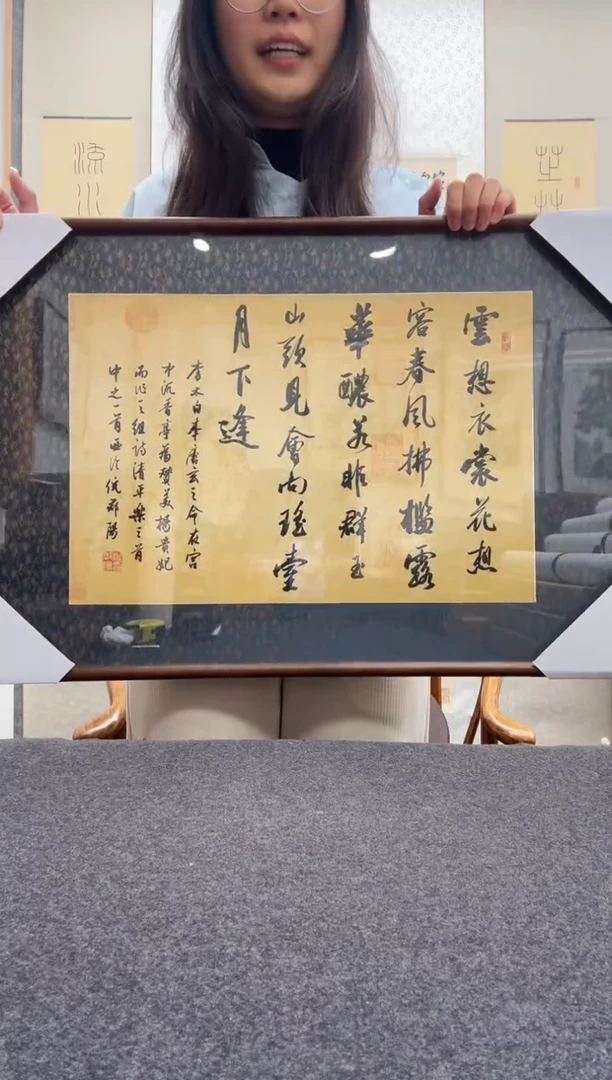 雲想衣裳花想
容春風拂檻露
華濃若非群玉
山頭見會向瑤臺
月下逢
李太白奉唐玄之命在宮
中沉香亭為贊美楊貴妃
而作之組詩清平樂三首
中之一首
流水
芷